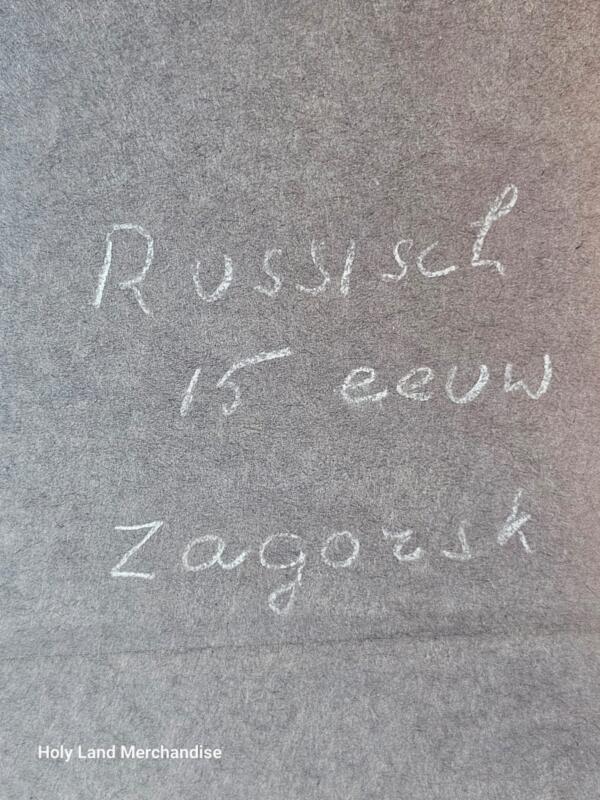 Russisch
15 eeuw
Zagorsk
Holy Land Merchandise